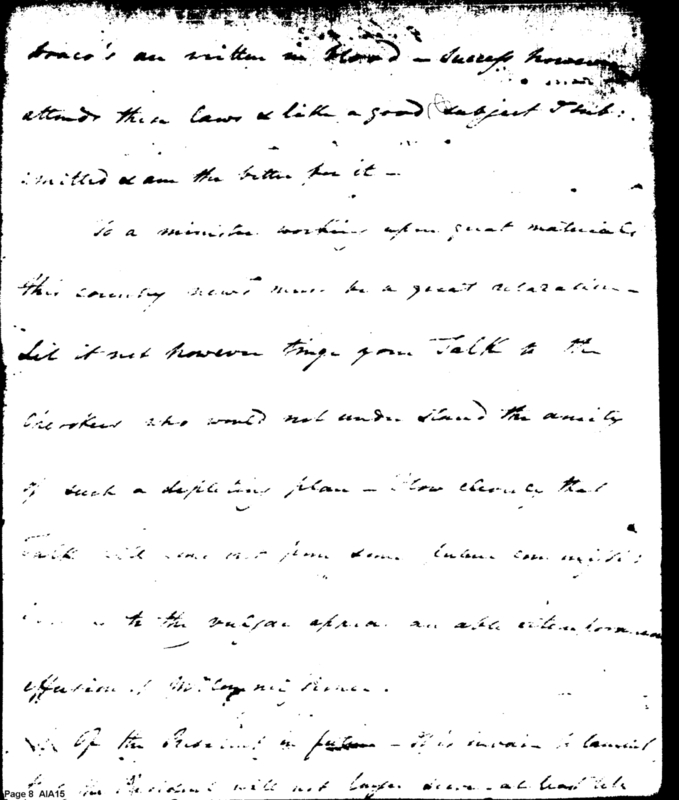 Draco's are written in blood – Success however
attends these laws & like a good subject I sub:
:mitted & am the better for it –
To a minister working upon great materials
this country news must be a great relaxation –
Let it not however tinge your Talk to the
Cherokees who would not under stand the amity
of such a depleting plan – How that
Talk will come out from some future
to the vulgar appear an able
effusion of
Of the President in future – It is in vain to lament
that the President will not longer serve – at least
Page 8 AIA15